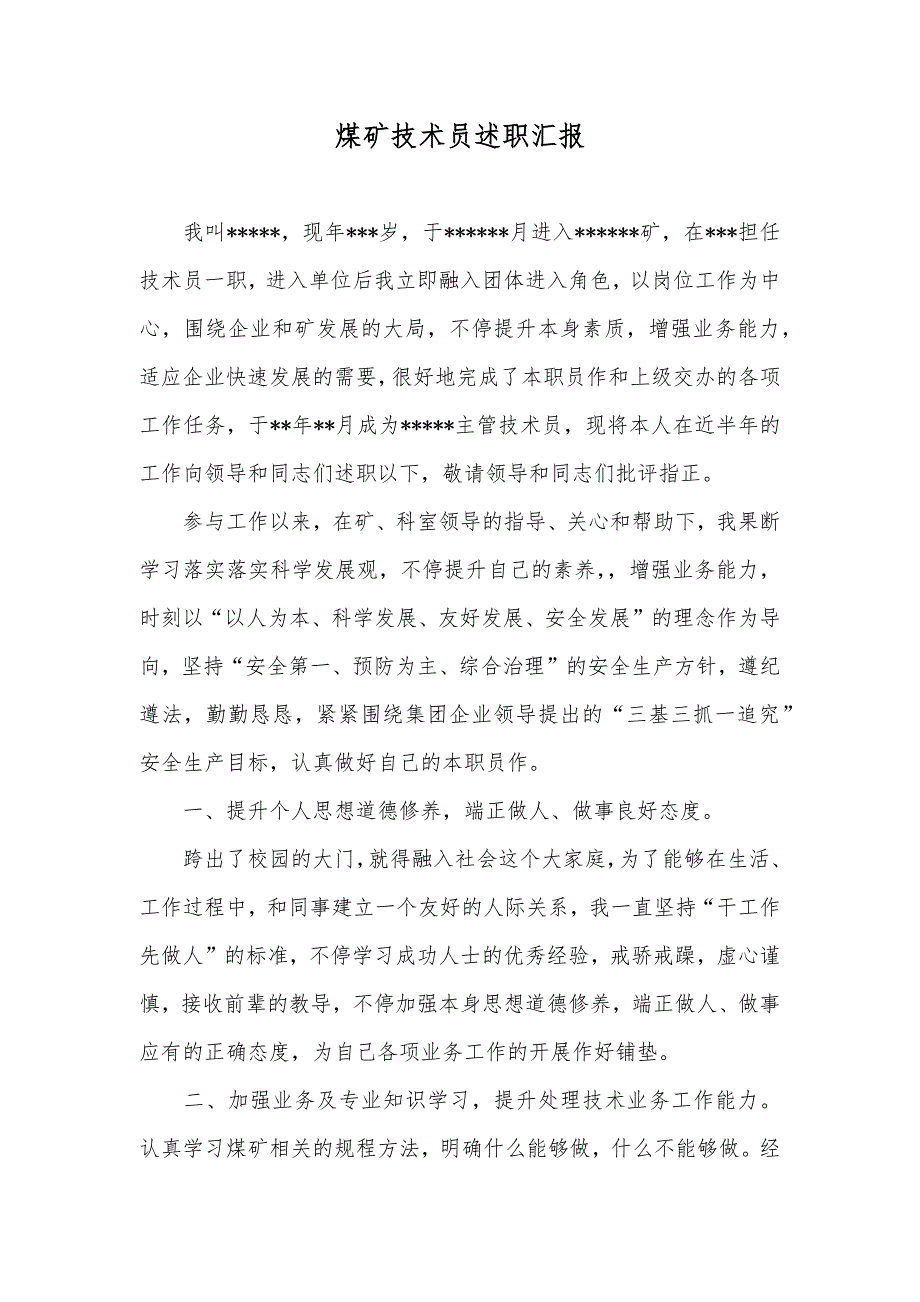 煤矿技术员述职汇报
我叫*****，现年***岁，于******月进入******矿，在***担任
技术员一职，进入单位后我立即融入团体进入角色，以岗位工作为中
心，围绕企业和矿发展的大局，不停提升本身素质，增强业务能力，
适应企业快速发展的需要，很好地完成了本职员作和上级交办的各项
工作任务，于**年**月成为*****主管技术员，现将本人在近半年的
工作向领导和同志们述职以下，敬请领导和同志们批评指正。
参与工作以来，在矿、科室领导的指导、关心和帮助下，我果断
学习落实落实科学发展观，不停提升自己的素养，，增强业务能力，
时刻以“以人为本、科学发展、友好发展、安全发展”的理念作为导
向，坚持“安全第一、预防为主、综合治理”的安全生产方针，遵纪
遵法，勤勤恳恳，紧紧围绕集团企业领导提出的“三基三抓一追究”
安全生产目标，认真做好自己的本职员作。
一、提升个人思想道德修养，端正做人、做事良好态度。
跨出了校园的大门，就得融入社会这个大家庭，为了能够在生活、
工作过程中，和同事建立一个友好的人际关系，我一直坚持“干工作
先做人”的标准，不停学习成功人士的优秀经验，戒骄戒躁，虚心谨
慎，接收前辈的教导，不停加强本身思想道德修养，端正做人、做事
应有的正确态度，为自己各项业务工作的开展作好铺垫。
二、加强业务及专业知识学习，提升处理技术业务工作能力。
认真学习煤矿相关的规程方法，明确什么能够做，什么不能够做。经